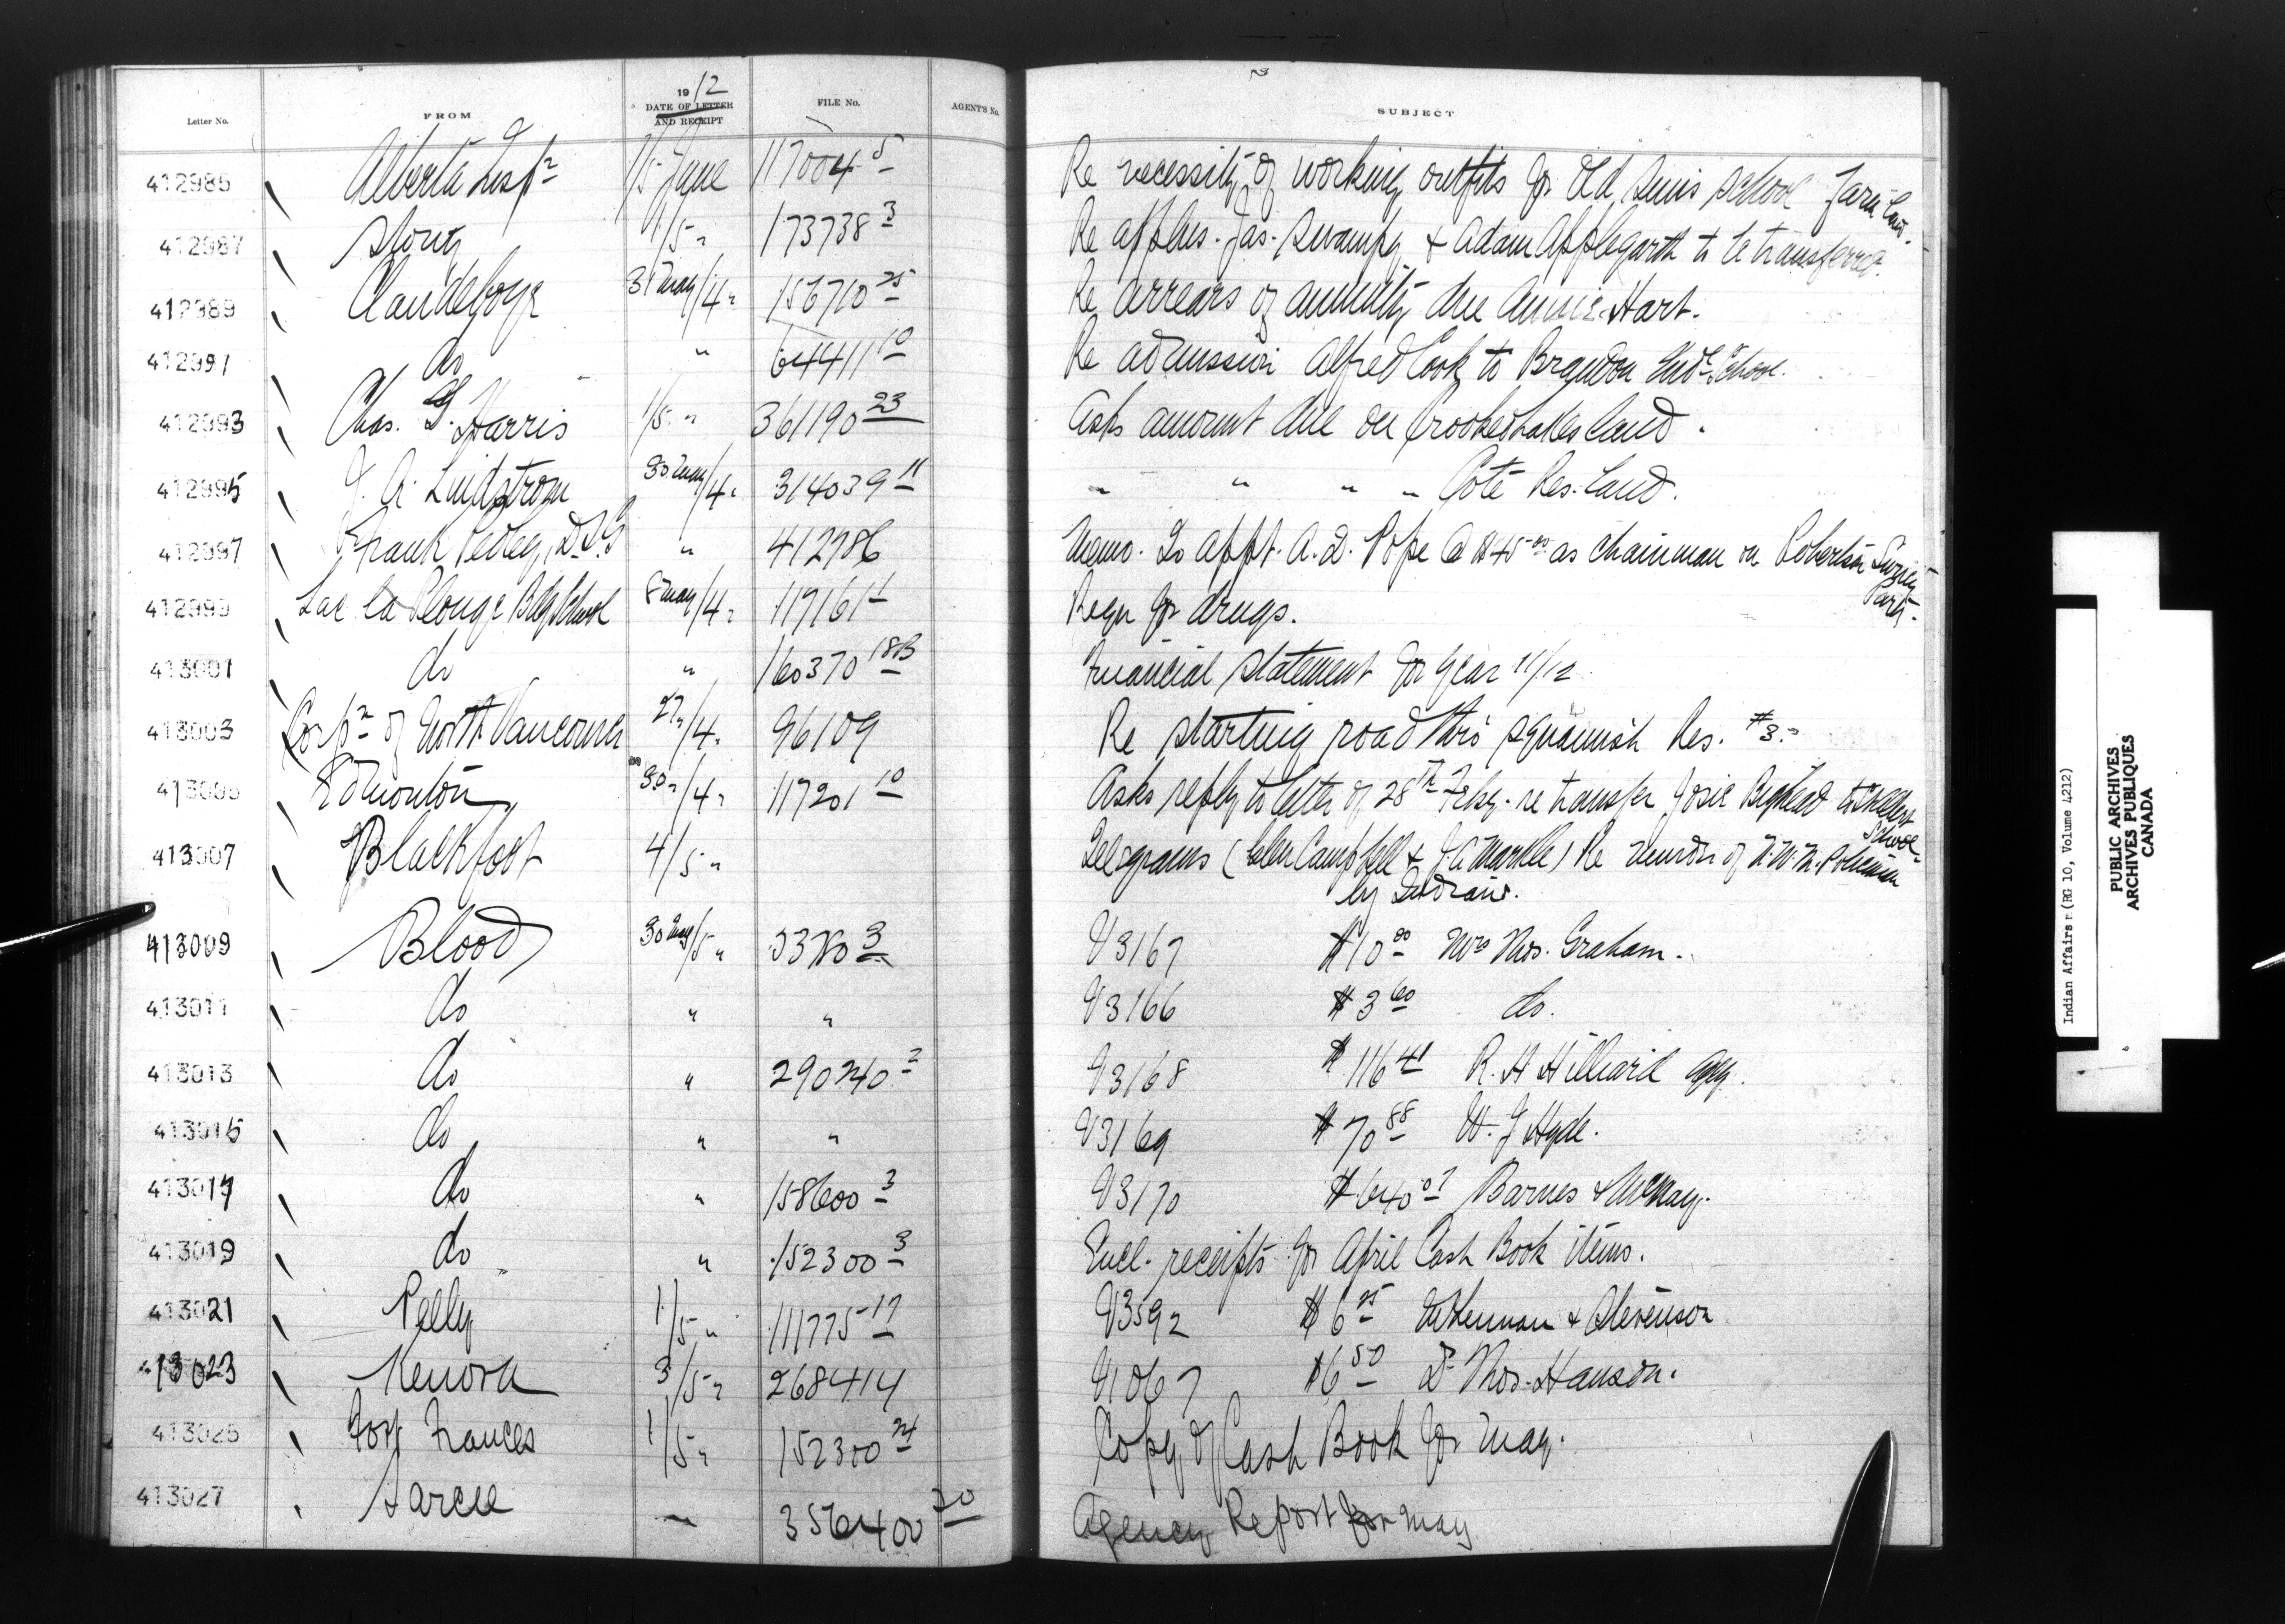 Letter No. FROM 1912 DATE OF LETTER AND RECEIPT FILE No. AGENT'S No. SUBJECT
412985 Alberta Insp^n 1/5 June 117004 5 Re necessity of working outfits for Old Suns school farm land.
412987 Stony 1/5 " 173738 3 Re applns. Jas. Swampy & Adam Applegarth to be transferred.
412989 Clandeboye 31 May/4 " 156710 25 Re arrears of annuity due Annie Hart.
412991 do " 64411 10 Re admission Alfred Cook to Brandon Ind^l School.
412993 Chas. G. Harris 1/5 " 361190 23 Asks amount due on Crooked Lakes land.
412995 J. A. Lindstrom 30 May/4 " 314039 11 " " " " Cote Res. land.
412997 Frank Pedley, D.S.G " 412786 Memo. To appt. A. D. Pope @ $45 00 as chainman on Robertson Survey Party.
412999 Lac la Plonge Bdg School 8 May/4 " 117161 1 Reqn for drugs.
413001 do " 160370 18B Financial statement for year 11/12
413003 Corp^n of North Vancouver 27 "/4 " 96109 Re starting road thro Squamish Res. #3.
413005 Edmonton 30 "/4 " 117201 10 Asks reply to letter of 28th Feby. re transfer Josie Bighead to School
413007 Blackfoot 4/5 " Telegrams (Glen Campbell & J A Markle) Re murder of N.W.M. Policeman
by Indians.
413009 Blood 30 May/5 " 3 V3167 $10 00 Mrs Thos. Graham.
413011 do " " V3166 $3 60 do.
413013 do " 290240 2 V3168 $116 41 R. H Hilliard
413015 do " " V3169 $70 88 W. J Hyde.
413017 do " 158600 3 V3170 $640 07 Barnes & McNay.
413019 do " 152300 3 Encl. receipts for April Cash Book items.
413021 Pelly 1/5 " 111775 17 V3592 $6 25 & Stevenson
413023 Kenora 3/5 " 268414 V1067 $6 50 Dr Thos. Hanson.
413025 Fort Frances 1/5 " 152300 24 Copy of Cash Book for May.
413027 Sarcee " 356400 20 Agency Report for May
Indian Affairs (RG 10, Volume 4212)
PUBLIC ARCHIVES
ARCHIVES PUBLIQUES
CANADA